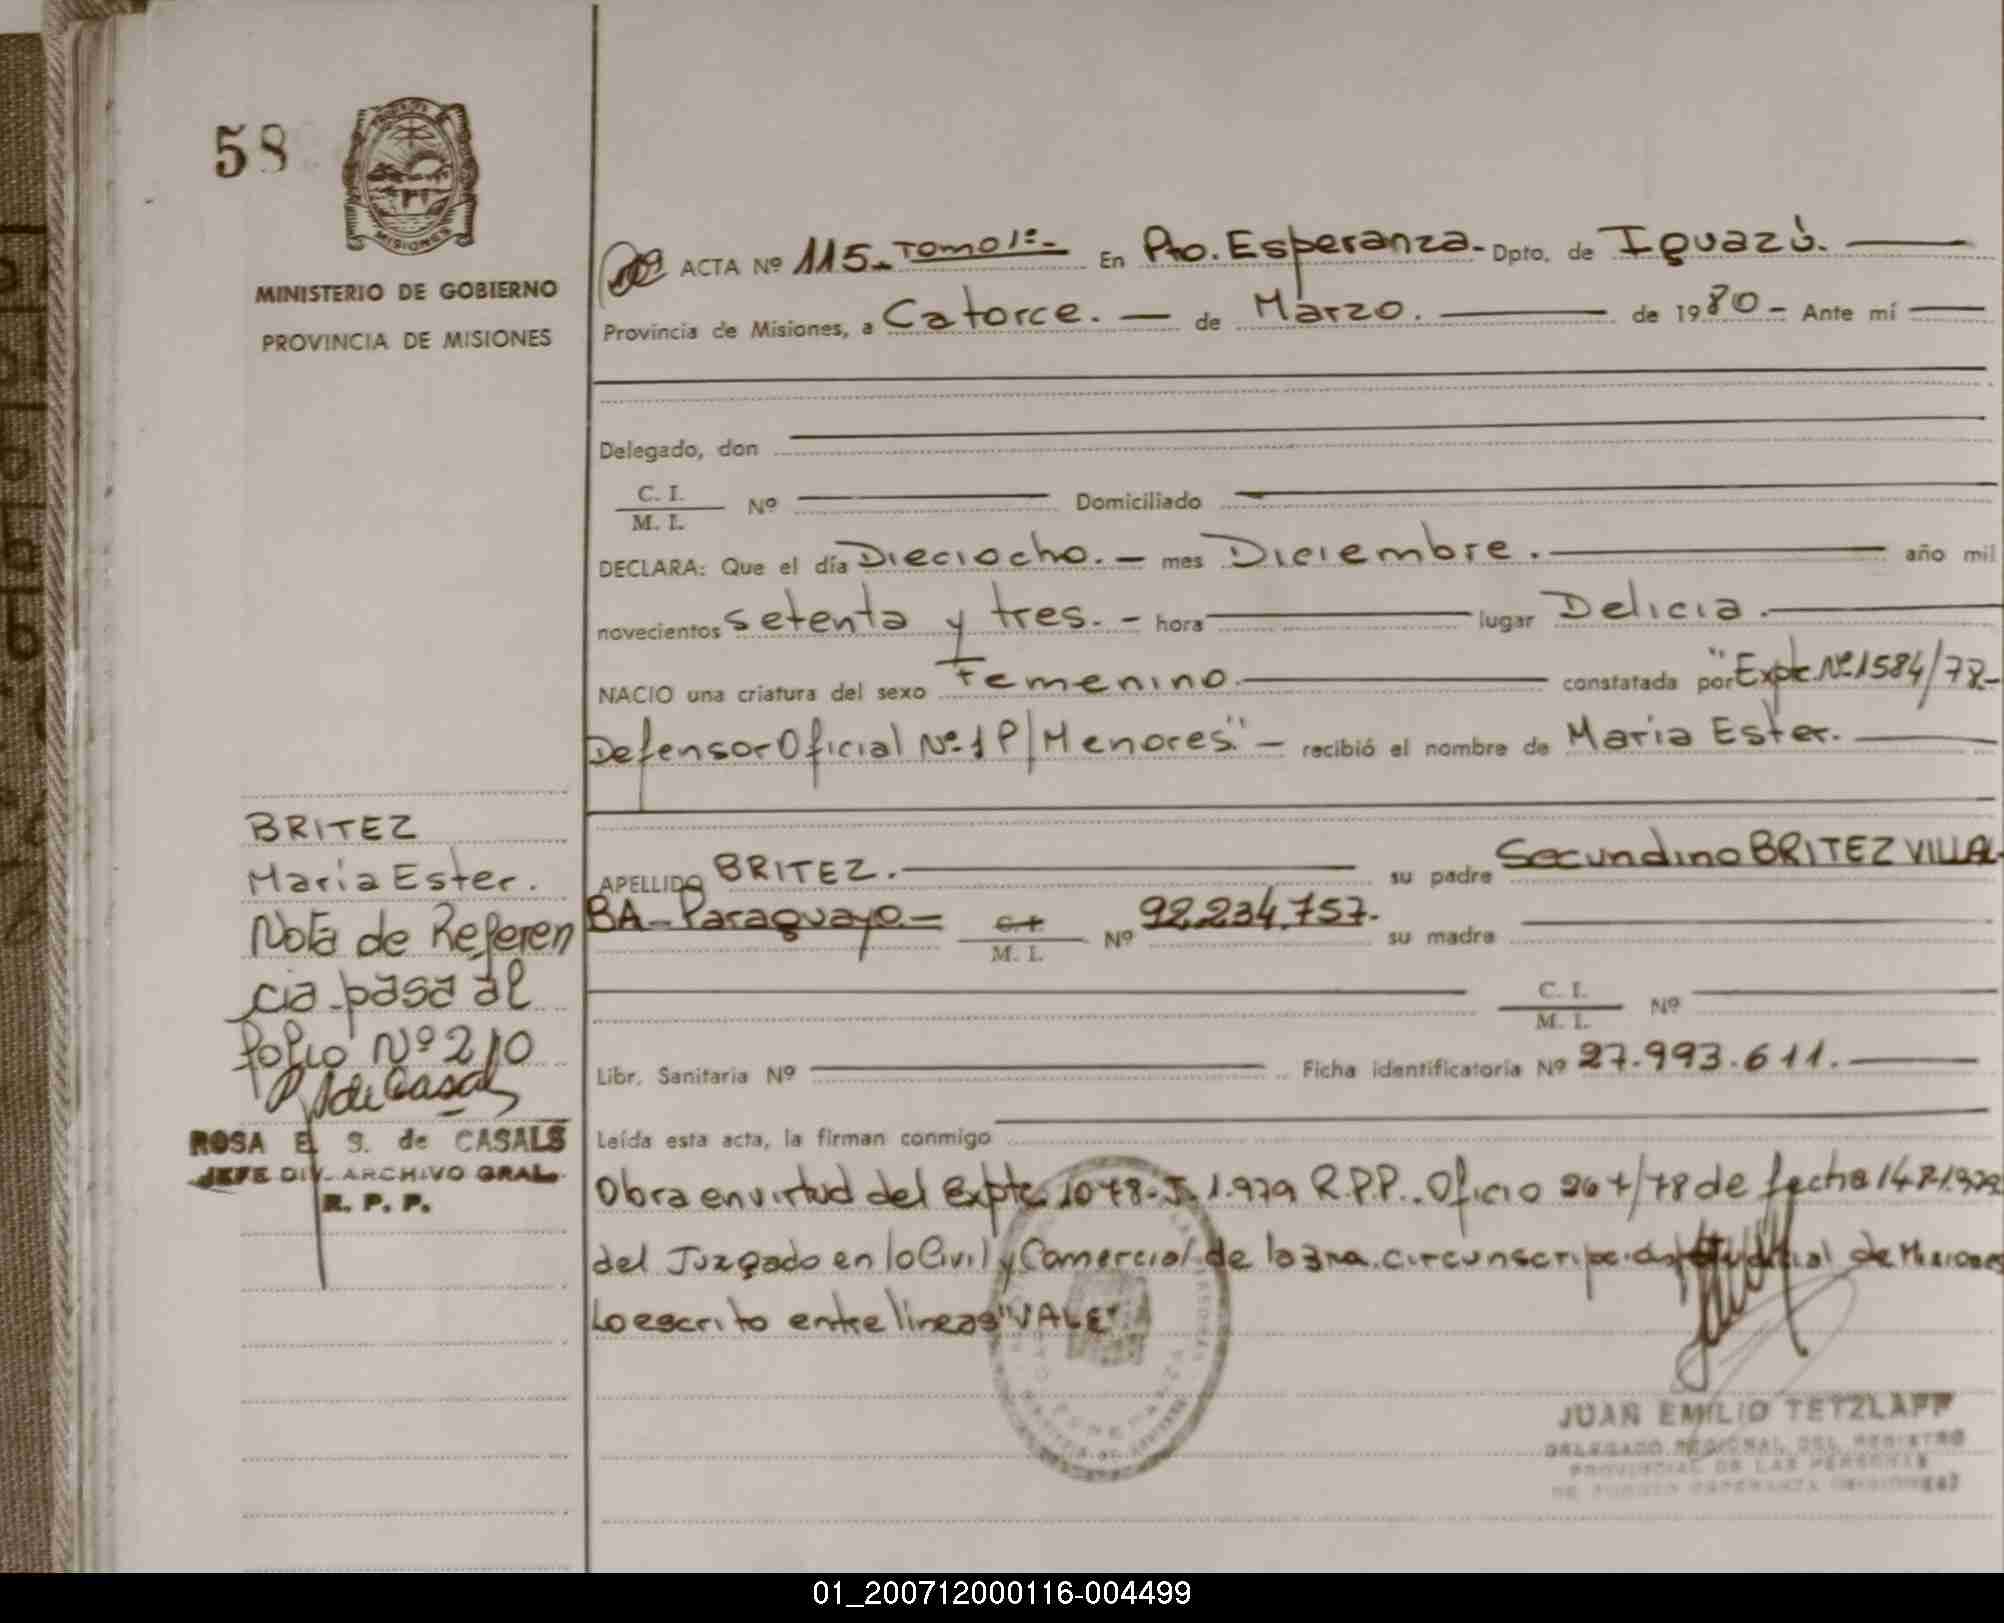 58
MISIONES
MINISTERIO DE GOBIERNO
PROVINCIA DE MISIONES
ACTA Nº 115.- Tomo 1º.- En Pto. Esperanza.- Dpto. de Iguazú.
Provincia de Misiones, a Catorce. — de Marzo. de 1980 - Ante mí
Delegado, don
C. I.
M. I. Nº Domiciliado
DECLARA: Que el día Dieciocho. — mes Diciembre. año mil
novecientos setenta y tres. - hora lugar Delicia.
NACIO una criatura del sexo Femenino. constatada por "Expte. Nº 1584/78-
Defensor Oficial Nº 1 P/Menores" - recibió el nombre de Maria Ester.
APELLIDO BRITEZ. su padre Secundino BRITEZ VILLAL-
BA - Paraguayo.- C.I.
M. I. Nº 92.234.757.- su madre
C. I.
M. I. Nº
Libr. Sanitaria Nº Ficha identificatoria Nº 27.993.611.
Leída esta acta, la firman conmigo
Obra en virtud del Expte. 1078-J. 1.979 R.P.P.. Oficio /78 de fecha
del Juzgado en lo Civil y Comercial de la 3ra. circunscripción Judicial de Misiones
Lo escrito entre líneas "VALE"
JUAN EMILIO TETZLAFF
DELEGADO REGIONAL DEL REGISTRO
PROVINCIAL DE LAS PERSONAS
DE PUERTO ESPERANZA (MISIONES)
BRITEZ
Maria Ester.
Nota de Referen
cia pasa al
folio Nº 210
ROSA E. S. de CASALS
JEFE DIV. ARCHIVO GRAL.
R. P. P.
01_200712000116-004499